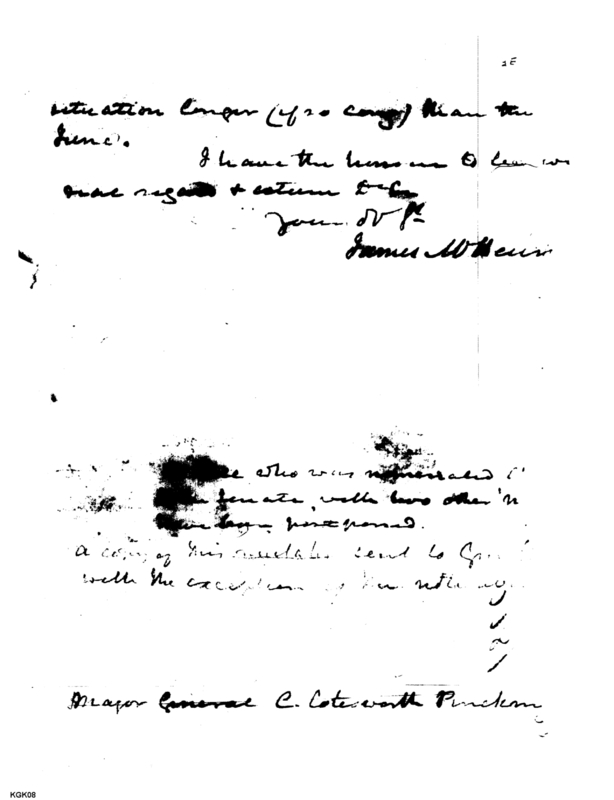 situation longer (if so long) than the
June.
I have the honour to be with
real regard & esteem Dr Sir
Your Ob St
James McHenr
who was nominated
Senate, with two other n
have been postponed.
a copy of this send to Gen
with the exception of the note
Major General C. Cotesworth Pinckn
KGK08